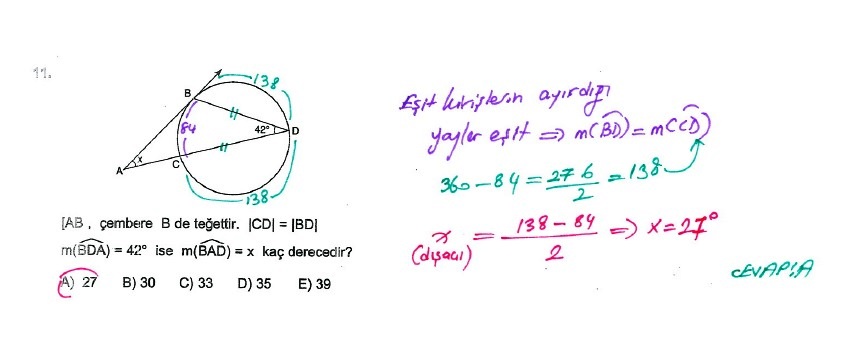 11.
138
B
84
42°
D
x
A
C
138
[AB , çembere B de teğettir. |CD| = |BD|
m(BDA) = 42° ise m(BAD) = x kaç derecedir?
A) 27 B) 30 C) 33 D) 35 E) 39
Eşit kirişlerin ayırdığı
yaylar eşit ⇒ m(BD) = m(CD)
360 - 84 = 276/2 = 138
x = 138 - 84/2 ⇒ x = 27°
(dışaçı)
CEVAP:A